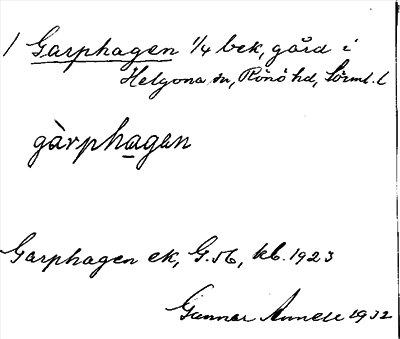 1 Garphagen 1/4 bek, gård i
Helgona sn, Rönö hd, Sörml. l
gàrphagen
Garphagen ek, G. 56, kb. 1923
Gunnar Annell 1932